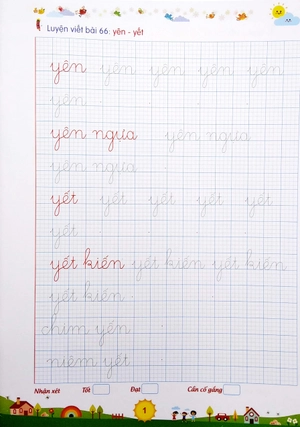 Luyện viết bài 66: yên - yết
yên yên yên yên yên
yên
yên ngựa yên ngựa
yên ngựa
yết yết yết yết yết
yết
yết kiến yết kiến yết kiến
yết kiến
chim yến
niêm yết
Nhận xét Tốt Đạt Cần cố gắng
1